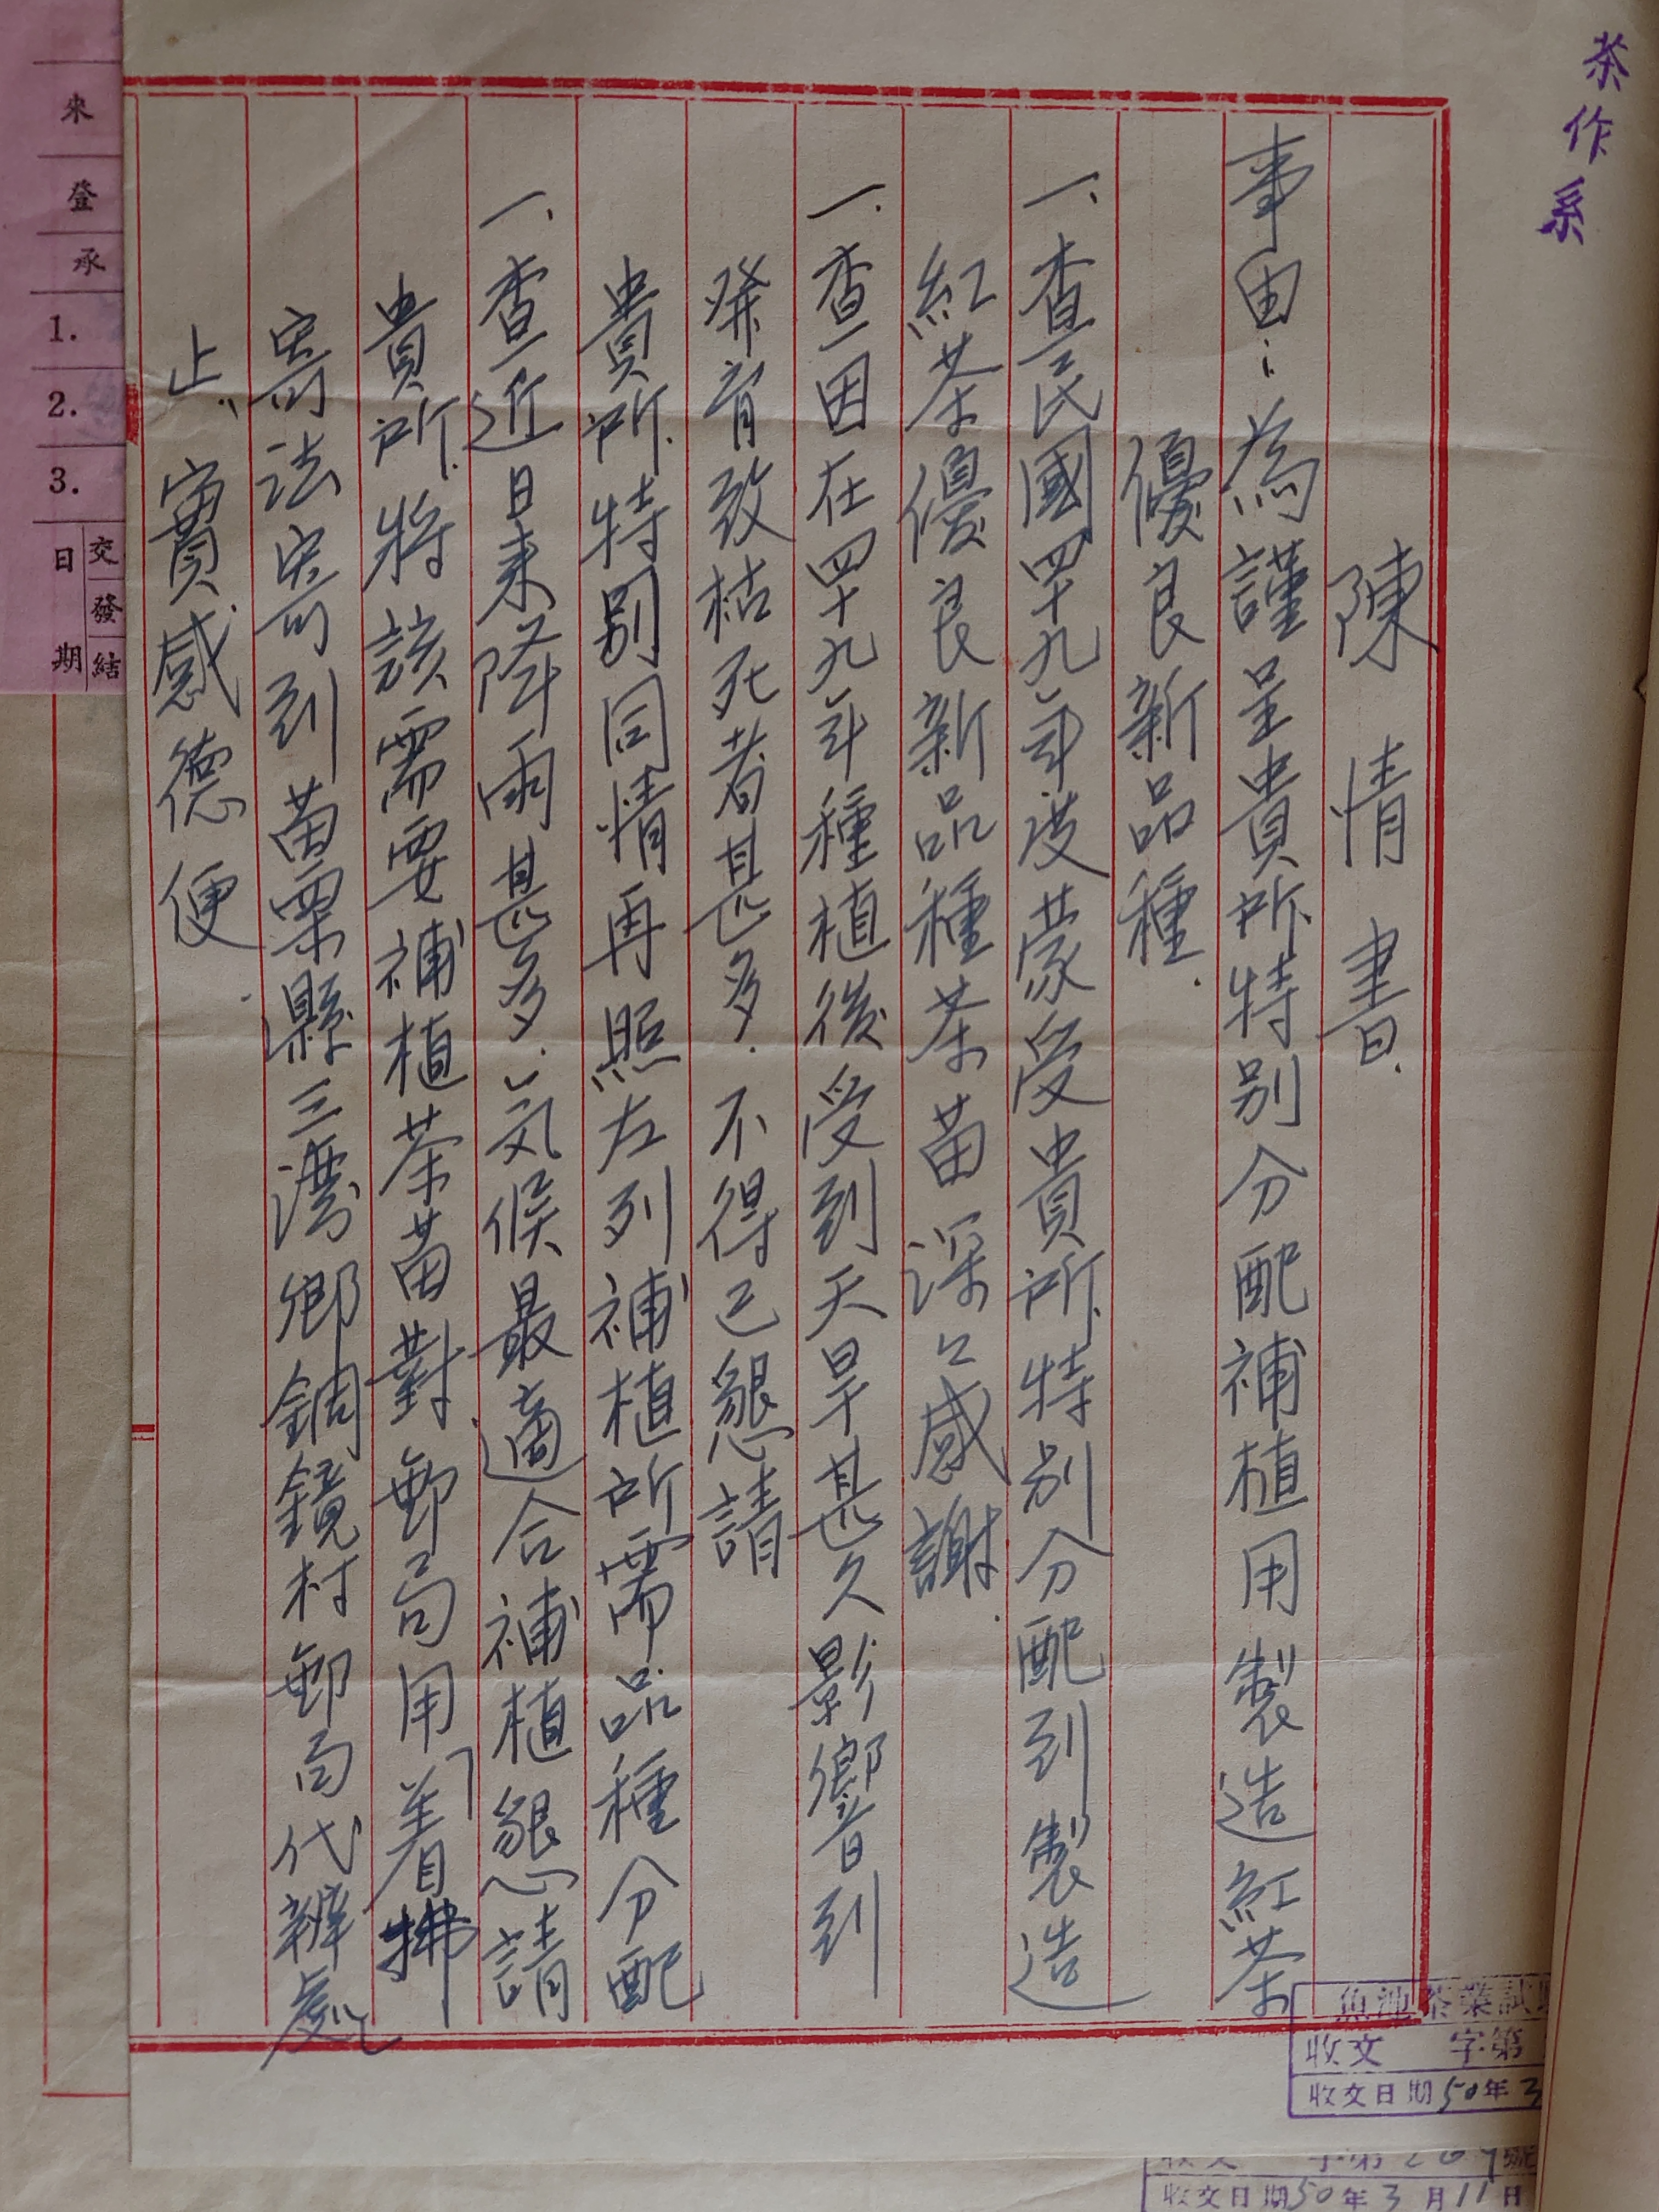 茶作系
陳情書.
事由:為謹呈貴所特別分配補植用製造紅茶
優良新品種.
一、查民國四十九年度蒙受貴所特別分配到製造
紅茶優良新品種茶苗深々感謝.
一.查因在四十九年種植後受到天旱甚久影響到
發育致枯死者甚多.不得已懇請
貴所特別同情再照左列補植所需品種分配
一、查近日来降雨甚多.気候最適合補植懇請
貴所.将該需要補植茶苗對郵局用着拂
寄法寄到苗栗縣三灣鄉銅鏡村郵局代辦處
止、實感德便.
魚池茶業試
收文 字第
收文日期50年3
收文 字第 號
收文日期50年3月11日
来
登
承
1.
2.
3.
交發結
日期